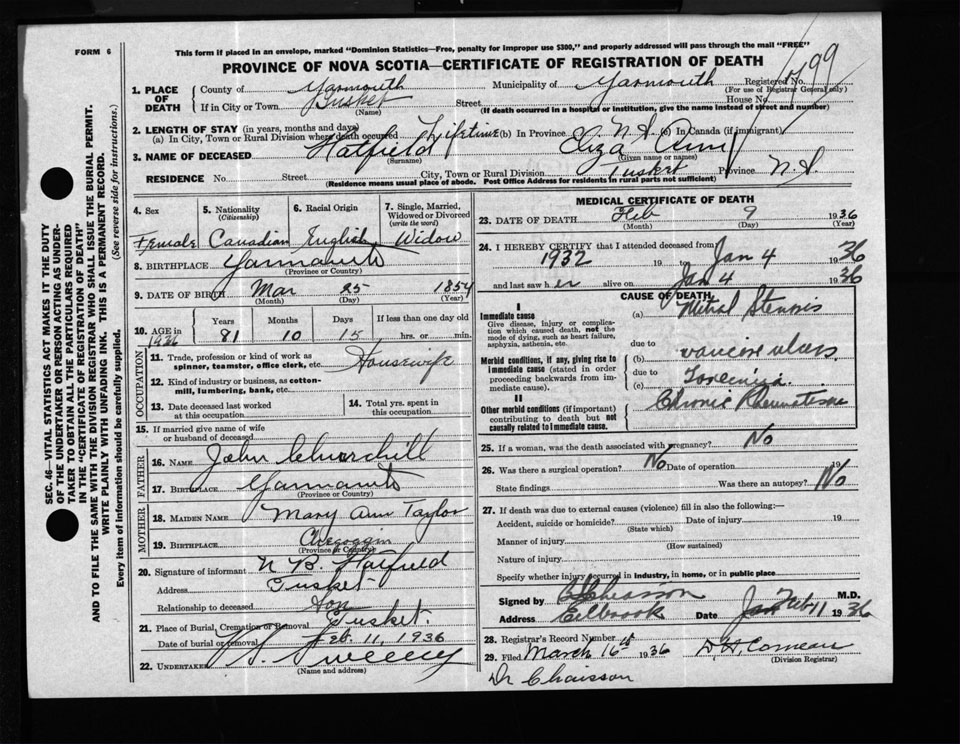 FORM 6
This form if placed in an envelope, marked "Dominion Statistics—Free, penalty for improper use $300," and properly addressed will pass through the mail "FREE"
PROVINCE OF NOVA SCOTIA—CERTIFICATE OF REGISTRATION OF DEATH
1. PLACE OF DEATH County of Yarmouth Municipality of Yarmouth Registered No. (For use of Registrar General only)
If in City or Town Tusket (Name) Street House No.
(If death occurred in a hospital or institution, give the name instead of street and number)
2. LENGTH OF STAY (in years, months and days)
(a) In City, Town or Rural Division where death occurred Lifetime (b) In Province N.S. (c) In Canada (if immigrant)
3. NAME OF DECEASED Hatfield (Surname) Eliza Ann (Given name or names)
RESIDENCE No. Street City, Town or Rural Division Tusket Province N.S.
(Residence means usual place of abode. Post Office Address for residents in rural parts not sufficient)
SEC. 46—VITAL STATISTICS ACT MAKES IT THE DUTY
OF THE UNDERTAKER OR PERSON ACTING AS UNDER-
TAKER TO OBTAIN ALL THE PARTICULARS REQUIRED
IN THE "CERTIFICATE OF REGISTRATION OF DEATH"
AND TO FILE THE SAME WITH THE DIVISION REGISTRAR WHO SHALL ISSUE THE BURIAL PERMIT.
WRITE PLAINLY WITH UNFADING INK. THIS IS A PERMANENT RECORD.
Every item of information should be carefully supplied. (See reverse side for instructions.)
4. Sex Female
5. Nationality (Citizenship) Canadian
6. Racial Origin English
7. Single, Married, Widowed or Divorced (write the word) Widow
8. BIRTHPLACE Yarmouth
(Province or Country)
9. DATE OF BIRTH Mar 25 1854
(Month) (Day) (Year)
10. AGE in 1936 Years 81 Months 10 Days 15 If less than one day old hrs. or min.
OCCUPATION
11. Trade, profession or kind of work as spinner, teamster, office clerk, etc. Housewife
12. Kind of industry or business, as cotton-mill, lumbering, bank, etc.
13. Date deceased last worked at this occupation
14. Total yrs. spent in this occupation
15. If married give name of wife or husband of deceased
FATHER
16. NAME John Churchill
17. BIRTHPLACE Yarmouth
(Province or Country)
MOTHER
18. MAIDEN NAME Mary Ann Taylor
19. BIRTHPLACE Chegoggin
(Province or Country)
20. Signature of informant N B Hatfield
Address Tusket
Relationship to deceased Son
21. Place of Burial, Cremation or Removal Tusket.
Date of burial or removal Feb. 11, 1936
22. UNDERTAKER Sweeney
(Name and address)
MEDICAL CERTIFICATE OF DEATH
23. DATE OF DEATH Feb 9 1936
(Month) (Day) (Year)
24. I HEREBY CERTIFY that I attended deceased from
1932 19 to Jan 4 36
and last saw her alive on Jan 4 1936
CAUSE OF DEATH
I
Immediate cause
Give disease, injury or complication which caused death, not the mode of dying, such as heart failure, asphyxia, asthenia, etc.
(a) Mitral Stenosis
due to
Morbid conditions, if any, giving rise to immediate cause (stated in order proceeding backwards from immediate cause).
(b) varicose ulcers
due to
(c) Toxemia
II
Other morbid conditions (if important) contributing to death but not causally related to immediate cause.
Chronic Rheumatism
25. If a woman, was the death associated with pregnancy? No
26. Was there a surgical operation? No Date of operation 19
State findings Was there an autopsy? No
27. If death was due to external causes (violence) fill in also the following:—
Accident, suicide or homicide? Date of injury 19
(State which)
Manner of injury
(How sustained)
Nature of injury
Specify whether injury occurred in industry, in home, or in public place
Signed by M.D.
Address Eelbrook Date Feb 11 1936
28. Registrar's Record Number
29. Filed March 16th 1936 D H Comeau
(Division Registrar)
Dr Chaisson